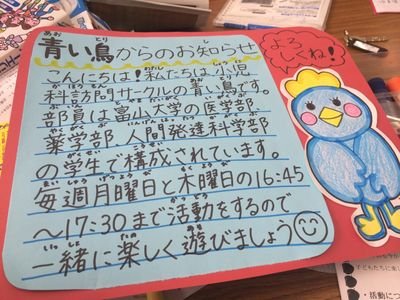 青い鳥からのお知らせ
よろしくね!
こんにちは!私たちは小児
科訪問サークルの青い鳥です。
部員は富山大学の医学部、
薬学部、人間発達科学部
の学生で構成されています。
毎週月曜日と木曜日の16:45
〜17:30まで活動をするので
一緒に楽しく遊びましょう